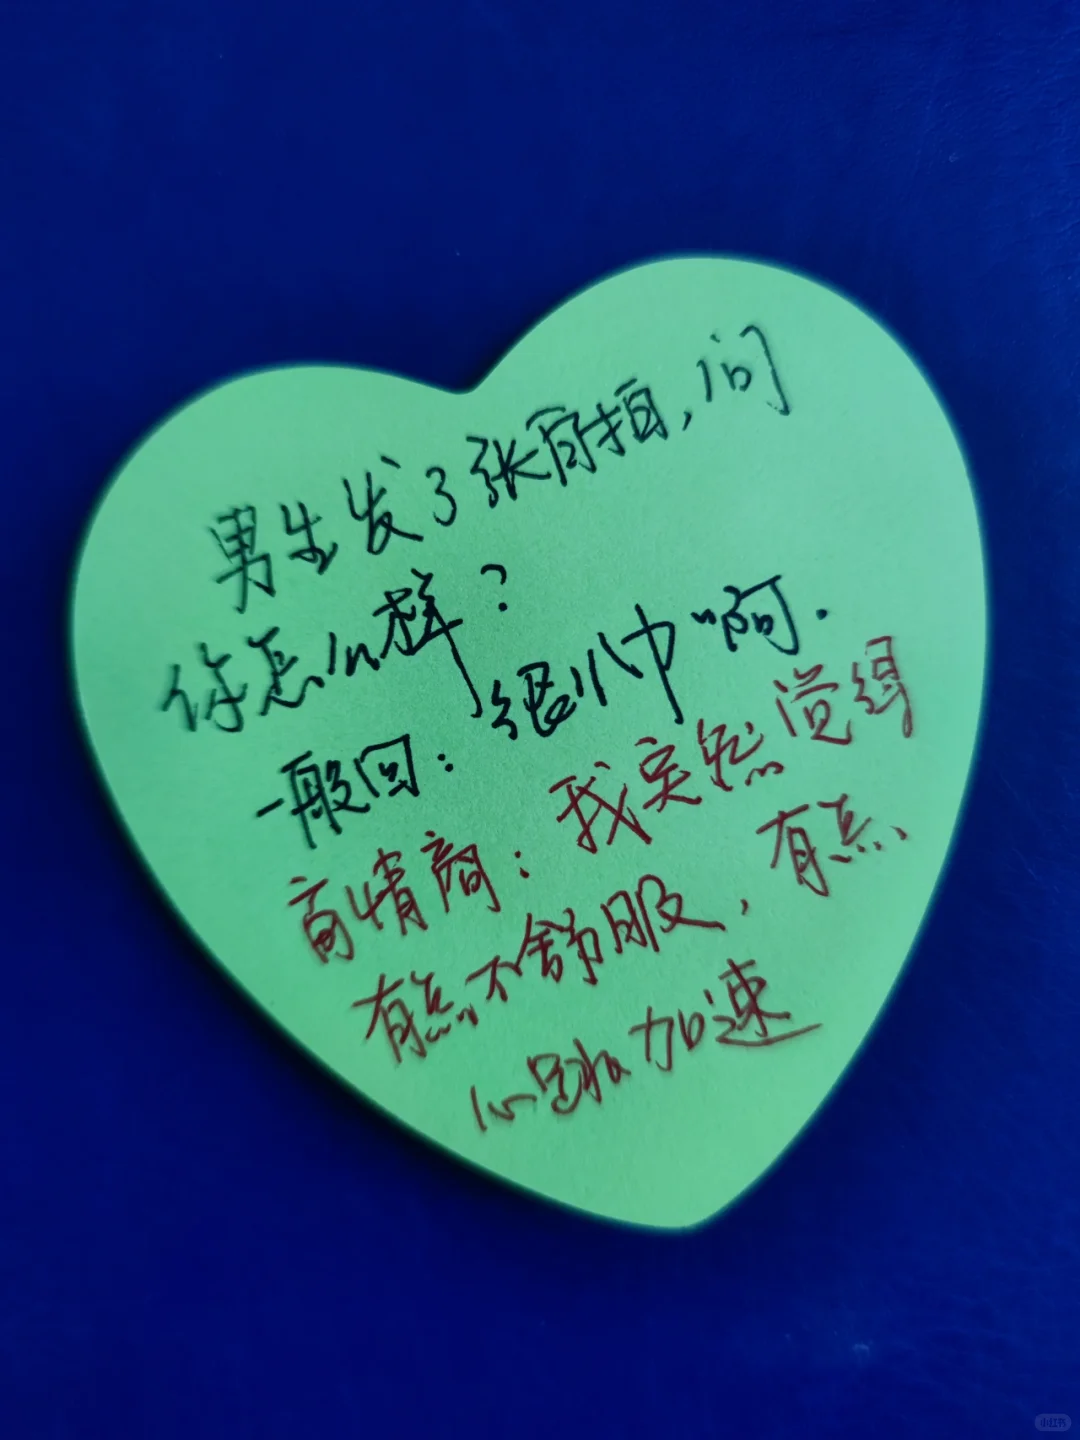 男生发了张自拍，问
你怎么样？
一般回：很帅啊.
高情商：我突然觉得
有点不舒服，有点
心跳加速
小红书